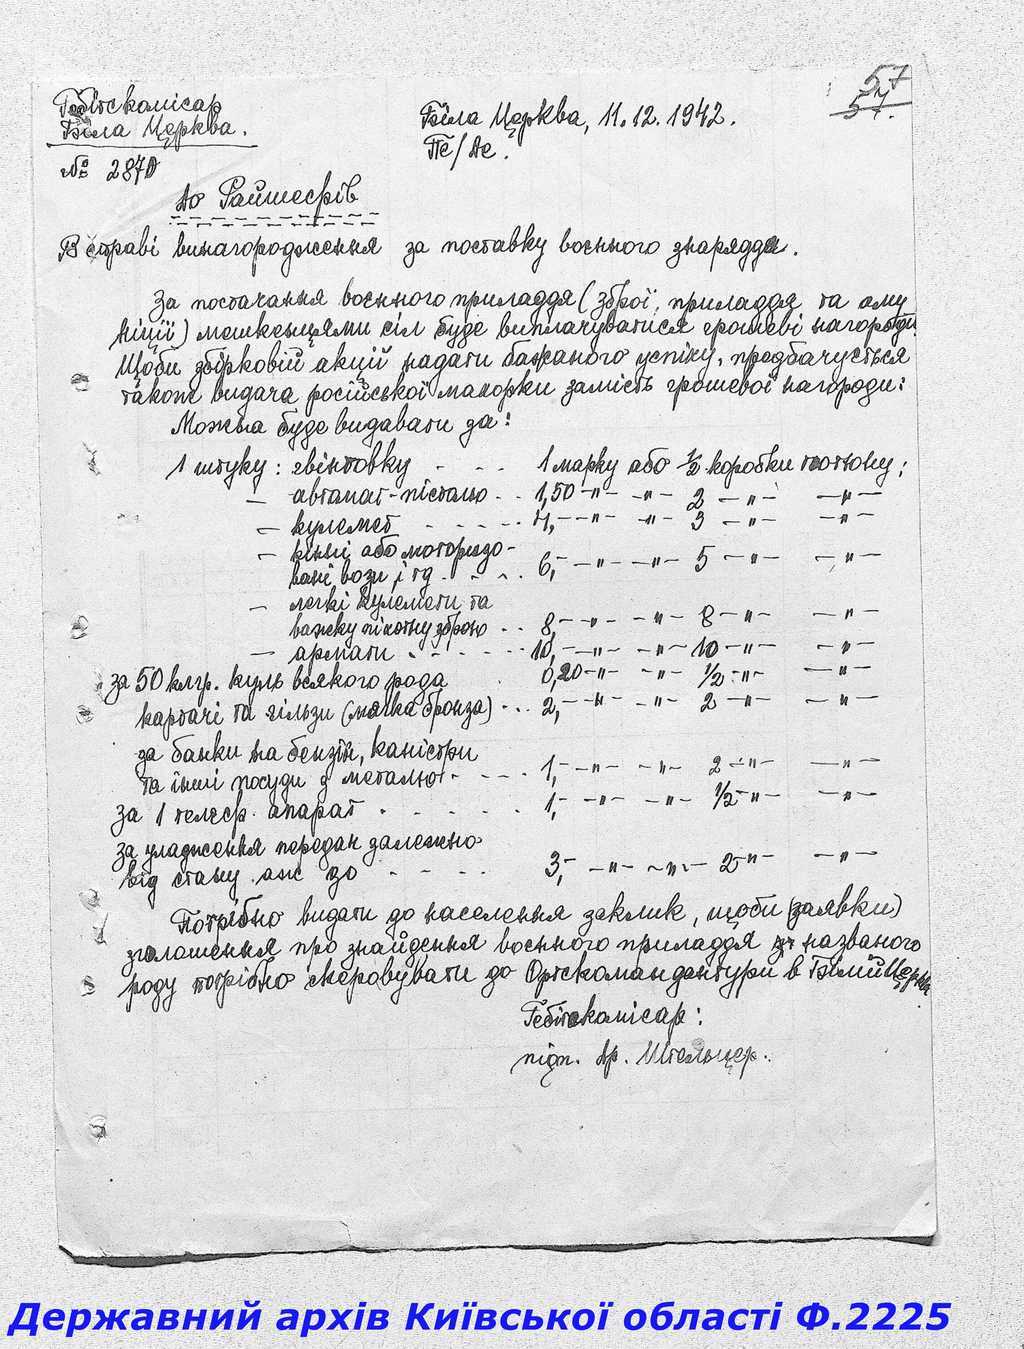 57
51.
Гебітскомісар
Біла Церква.
№ 2870
Біла Церква, 11.12.1942.
Пе/Ае.
До Райшефів
В справі винагородження за поставку воєнного знаряддя.
За постачання воєнного приладдя (зброї, приладдя та аму
ніції) мешканцями сіл буде виплачуватися грошеві нагороди.
Щоби збірковій акції надати бажаного успіху, предбачується
також видача російської махорки замість грошевої нагороди:
Можна буде видавати за:
1 штуку: гвінтовку - - - 1 марку або 1/2 коробки тютюну;
— автомат-пістолю - - 1,50 -"- -"- 2 -"- -"-
— кулемет - - - - - 4,- -"- -"- 3 -"- -"-
— кінні або моторизо-
вані вози і тд. - - - 6,- -"- -"- 5 -"- -"-
— легкі кулемети та
важку піхотну зброю - - 8,- -"- -"- 8 -"- -"-
— армати - - - - - 10,- -"- -"- 10 -"- -"-
за 50 клгр. куль всякого рода 0,20 -"- -"- 1/2 -"- -"-
картачі та гільзи (мягка бронза) - - - 2,- -"- -"- 2 -"- -"-
за банки на бензін, каністри
та інші посуди з металю - - - - 1,- -"- -"- 2 -"- -"-
за 1 телеф. апарат - - - - - 1,- -"- -"- 1/2 -"- -"-
за уладження передач залежно
від стану аж до - - - - 3,- -"- -"- 2 -"- -"-
Потрібно видати до населення заклик, щоби (заявки)
зголошення про знайдення воєнного приладдя названого
роду потрібно скеровувати до Ортскомандантури в Білій Церкві
Гебітскомісар:
підп. Др. Штельцер.
Державний архів Київської області Ф.2225